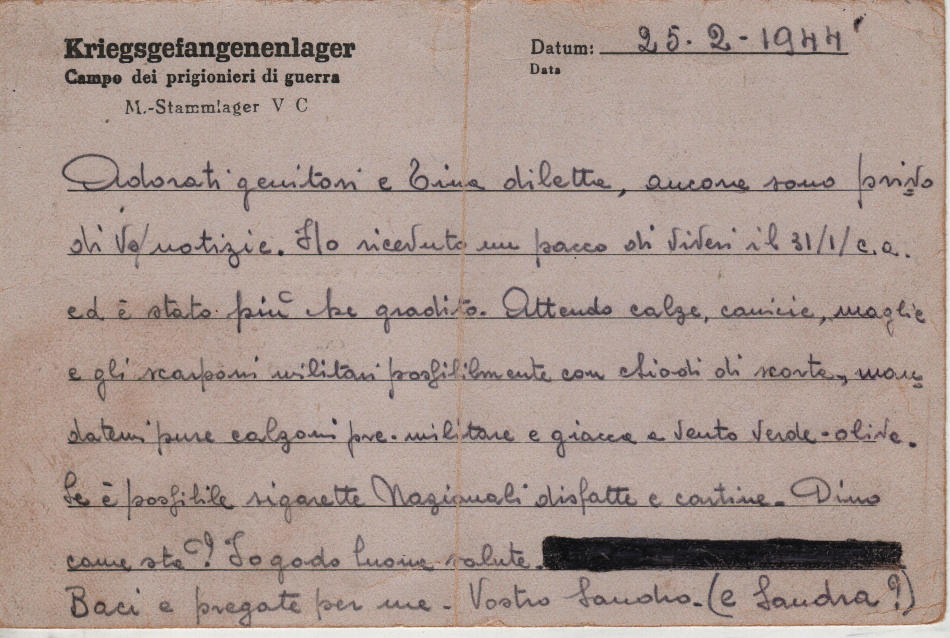 Kriegsgefangenenlager
Campo dei prigionieri di guerra
M.-Stammlager V C
Datum: 25.2-1944
Data
Adorati genitori e Tina diletta, ancora sono privo
di Vs/ notizie. Ho ricevuto un pacco di viveri il 31/1/c.a.
ed è stato più che gradito. Attendo calze, camicie, maglie
e gli scarponi militari possibilmente con chiodi di scorta, man
datemi pure calzoni pre-militare e giacca a vento verde-oliva.
Se è possibile sigarette Nazionali disfatte e cartine. Dino
come sta? Io godo buona salute.
Baci e pregate per me - Vostro Sandro. (e Sandra?)